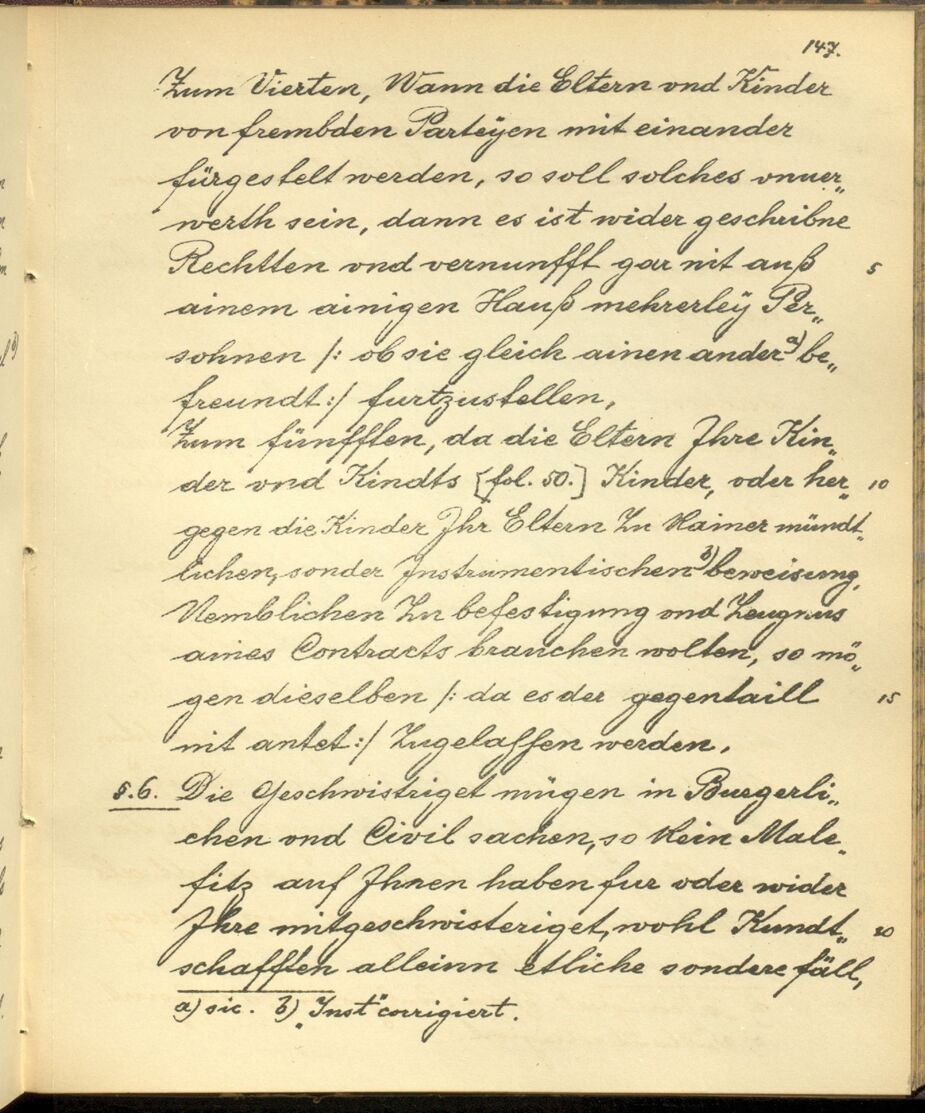 147.
Zum Vierten, Wann die Eltern vnd Kinder
von frembden Parteÿen mit einander
fürgestelt werden, so soll solches vnuer„
werth sein, dann es ist wider geschribne
Rechtten vnd vernunfft gar nit auß 5
ainem ainigen Hauß mehrerleÿ Per„
sohnen /: ob sie gleich ainen ander a) be„
freundt :/ furtzustellen,
Zum fünfften, da die Eltern Jhre Kin„
der vnd Kindts [fol. 50.] Kinder, oder her„ 10
gegen die Kinder Jhr Eltern Zu Kainer mündt„
lichen, sonder Jnstrumentischen b) beweisung,
Nemblichen Zu befestigung vnd Zeugnus
aines Contracts brauchen wolten, so mö„
gen dieselben /: da es der gegentaill 15
nit antet :/ Zugelassen werden.
§. 6. Die Geschwistriget mügen in Burgerli„
chen vnd Civil sachen, so Kein Male„
fitz auf Jhnen haben fur oder wider
Jhre mitgeschwisteriget, wohl Kundt„ 20
schafften alleinn etliche sondere fäll,
a) sic. b) „Inst“ corrigiert.